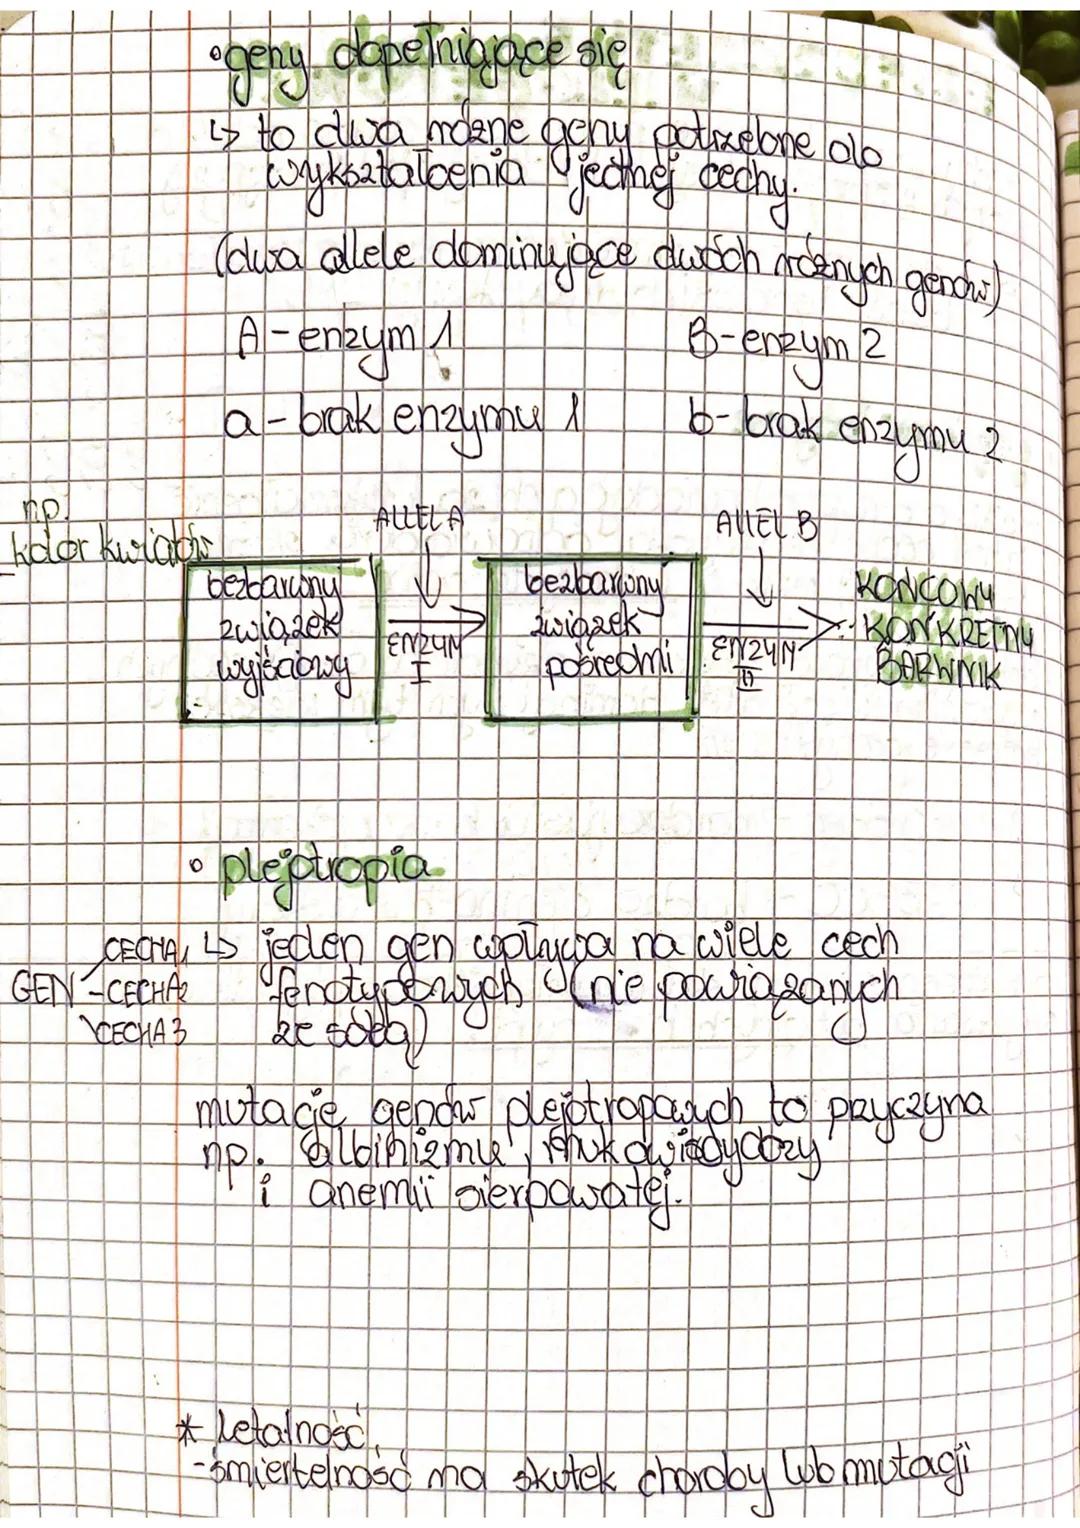 • geny dopełniające się
↳ to dwa różne geny potrzebne do
wykształcenia jednej cechy.
(dwa allele dominujące dwóch różnych genów)
A - enzym 1 B - enzym 2
a - brak enzymu 1 b - brak enzymu 2
np.
kolor kwiatów
ALLEL A ALLEL B
bezbarwny
związek
wyjściowy
ENZYM
I
bezbarwny
związek
pośredni
ENZYM
II
KOŃCOWY
KONKRETNY
BARWNIK
• plejotropia
GEN - CECHA 1
- CECHA 2
CECHA 3
↳ jeden gen wpływa na wiele cech
fenotypowych (nie powiązanych
ze sobą)
mutacje genów plejotropowych to przyczyna
np. albinizmu, mukowiscydozy
i anemii sierpowatej.
* Letalność
- śmiertelność na skutek choroby lub mutacji